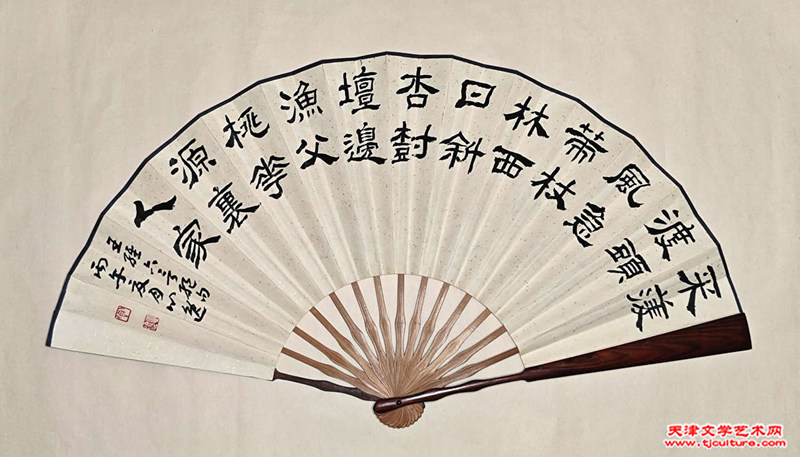 采菱
渡頭
風急
策杖
林西
日斜
杏樹
壇邊
漁父
桃花
源裏
人家
王維六言
丙午夏月
天津文学艺术网
www.tjculture.com